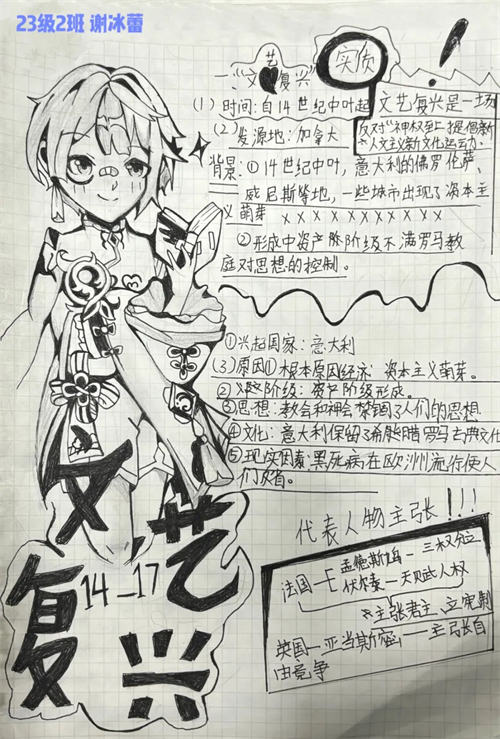 23级2班 谢冰蕾
一、“文艺复兴”
实质
(1) 时间：自14世纪中叶起
文艺复兴是一场
反对“神权至上”提倡新
人文主义新文化运动.
(2) 发源地：加拿大
背景：①14世纪中叶，意大利的佛罗伦萨、
威尼斯等地，一些城市出现了资本主
义萌芽
X X X X X X X X X X
②形成中资产阶级不满罗马教
庭对思想的控制。
①兴起国家：意大利
(3) 原因①根本原因经济：资本主义萌芽。
②阶级：资产阶级形成。
③思想：教会和神会禁锢了人们的思想
④文化：意大利保留了希腊罗马古典文化
⑤现实因素：黑死病在欧洲流行使人
们
代表人物主张!!!
法国
孟德斯鸠—三权分立
伏尔泰—天赋人权
主张君主立宪制
英国—亚当斯密——主张自
由竞争
文艺
复兴
14—17